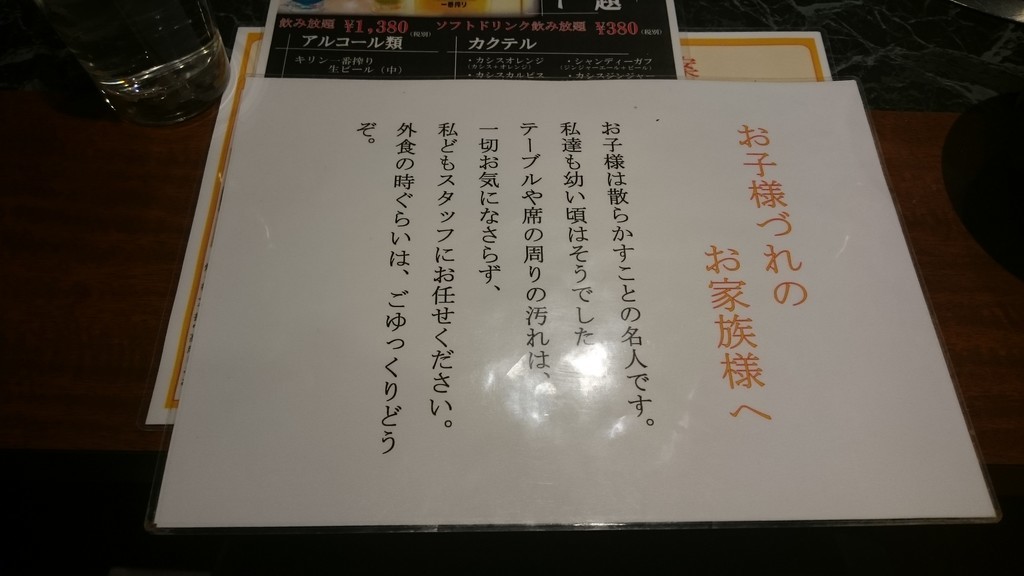 一番搾り
飲み放題 ¥1,380(税別) ソフトドリンク飲み放題 ¥380(税別)
アルコール類
キリン一番搾り
生ビール(中)
カクテル
・カシスオレンジ
(カシス+オレンジ)
・カシスカルピス
・シャンディーガフ
(ジンジャーエール+ビール)
・カシスジンジャー
お子様づれの
お家族様へ
お子様は散らかすことの名人です。
私達も幼い頃はそうでした
テーブルや席の周りの汚れは、
一切お気になさらず、
私どもスタッフにお任せください。
外食の時ぐらいは、ごゆっくりどう
ぞ。